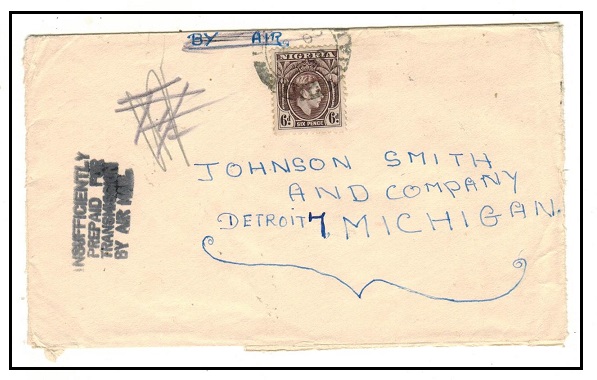 BY AIR.
NIGERIA
6d 6d
SIX PENCE
JOHNSON SMITH
AND COMPANY
DETROIT 7, MICHIGAN.
INSUFFICIENTLY
PREPAID FOR
TRANSMISSION
BY AIR MAIL